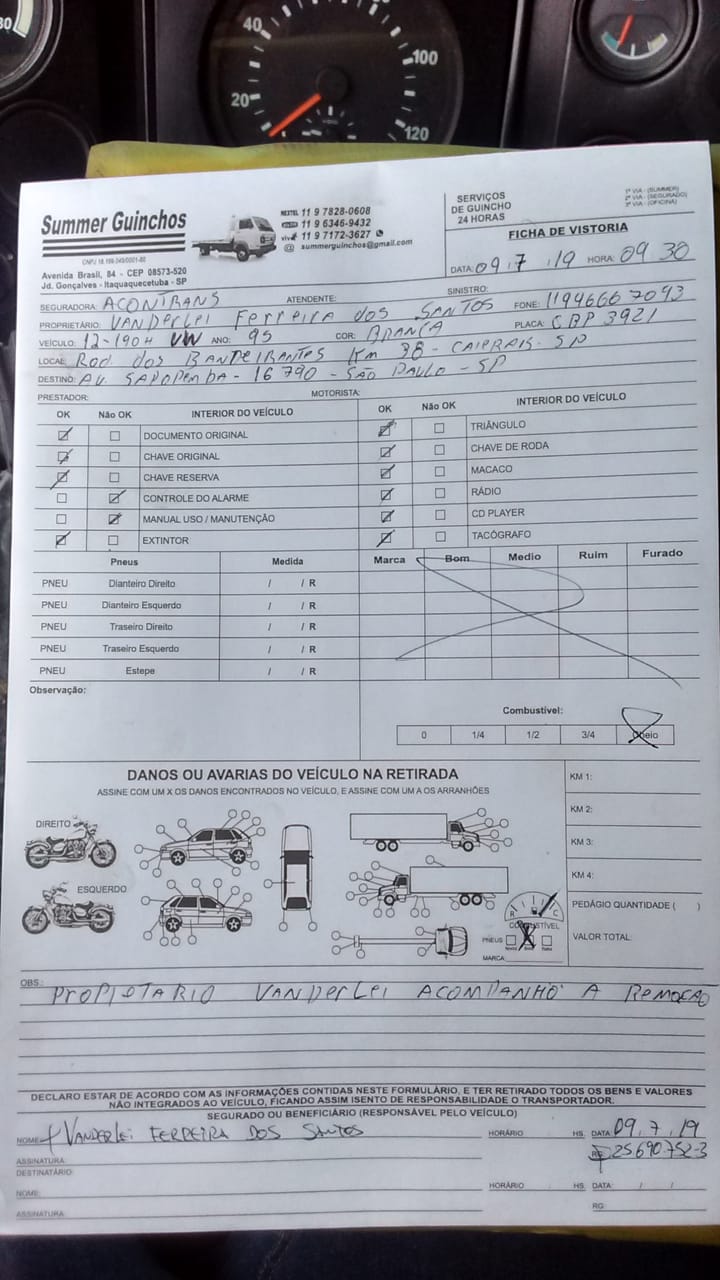 80
40
100
20
120
Summer Guinchos
Avenida Brasil, 84 - CEP 08573-520
Jd. Gonçalves - Itaquaquecetuba - SP
NEXTEL 11 9 7828-0608
11 9 6346-9432
vivo 11 9 7172-3627
@ summerguinchos@gmail.com
SERVIÇOS
DE GUINCHO
24 HORAS
1ª VIA - (SUMMER)
2ª VIA - (SEGURADO)
3ª VIA - (OFICINA)
FICHA DE VISTORIA
DATA: 09 , 7 , 19 HORA: 09 30
SEGURADORA: ACONTRANS ATENDENTE: SINISTRO:
PROPRIETÁRIO: VANDERLEI FERREIRA DOS SANTOS FONE: 11946667093
VEÍCULO: 12-190H VW ANO: 95 COR: BRANCA PLACA: CBP 3921
LOCAL: ROD. DOS BANDEIRANTES KM 38 - CAIERAIS - SP
DESTINO: AV. SAPOPEMBA - 16790 - SÃO PAULO - SP
PRESTADOR: MOTORISTA:
OK Não OK INTERIOR DO VEÍCULO OK Não OK INTERIOR DO VEÍCULO
DOCUMENTO ORIGINAL TRIÂNGULO
CHAVE ORIGINAL CHAVE DE RODA
CHAVE RESERVA MACACO
CONTROLE DO ALARME RÁDIO
MANUAL USO / MANUTENÇÃO CD PLAYER
EXTINTOR TACÓGRAFO
Pneus Medida Marca Bom Medio Ruim Furado
PNEU Dianteiro Direito / / R
PNEU Dianteiro Esquerdo / / R
PNEU Traseiro Direito / / R
PNEU Traseiro Esquerdo / / R
PNEU Estepe / / R
Observação:
Combustível:
0 1/4 1/2 3/4 Cheio
DANOS OU AVARIAS DO VEÍCULO NA RETIRADA
ASSINE COM UM X OS DANOS ENCONTRADOS NO VEÍCULO, E ASSINE COM UM A OS ARRANHÕES
DIREITO
ESQUERDO
KM 1:
KM 2:
KM 3:
KM 4:
PEDÁGIO QUANTIDADE ( )
VALOR TOTAL:
R C
COMBUSTÍVEL
PNEUS
MARCA
OBS.: PROPIETARIO VANDERLEI ACOMPANHO A REMOÇÃO
DECLARO ESTAR DE ACORDO COM AS INFORMAÇÕES CONTIDAS NESTE FORMULÁRIO, E TER RETIRADO TODOS OS BENS E VALORES
NÃO INTEGRADOS AO VEÍCULO, FICANDO ASSIM ISENTO DE RESPONSABILIDADE O TRANSPORTADOR.
SEGURADO OU BENEFICIÁRIO (RESPONSÁVEL PELO VEÍCULO)
NOME: VANDERLEI FERREIRA DOS SANTOS HORÁRIO HS. DATA 09.7.19
ASSINATURA: RG: 25690752-3
DESTINATÁRIO:
NOME: HORÁRIO : HS. DATA: / /
ASSINATURA: RG: